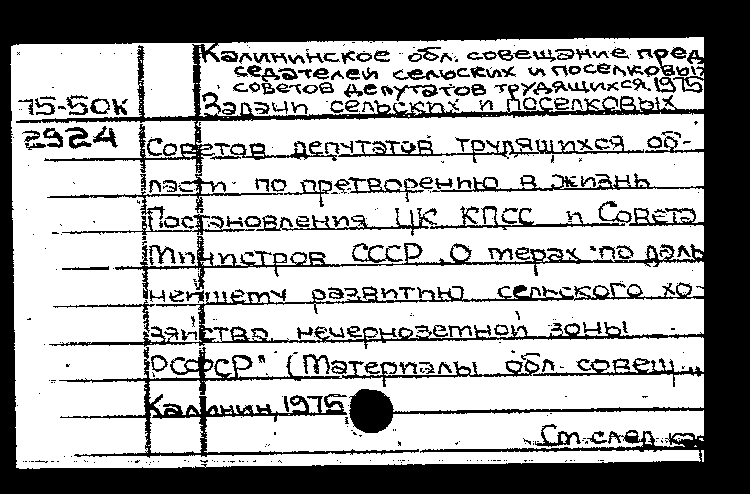 Калининское обл. совещание пред
седателей сельских и поселковых
советов депутатов трудящихся. 1975
75-50к Задачи сельских и поселковых
2924 Советов депутатов трудящихся об-
ласти по претворению в жизнь
Постановления ЦК КПСС и Совета
Министров СССР „О мерах по даль
нейшему развитию сельского хо-
зяйства нечерноземной зоны
РСФСР" (Материалы обл. совещ.,
Калинин, 1975
См. след